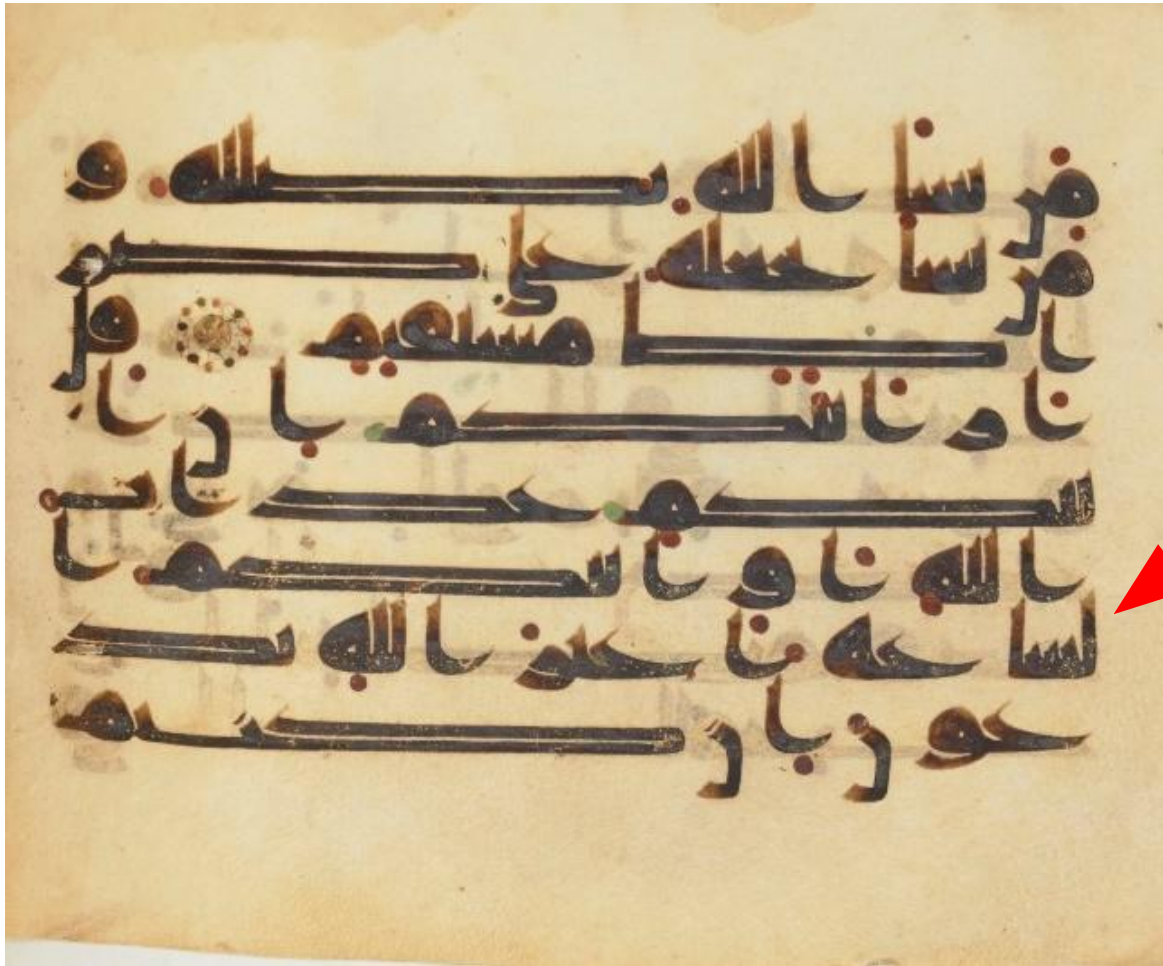 من يشا الله يضلله و
من يشا يجعله على صر
اط مستقيم قل
ارايتكم ان ا
تيكم عذاب
الله او اتتكم ا
لساعه اغير الله تد
عون ان كنتم